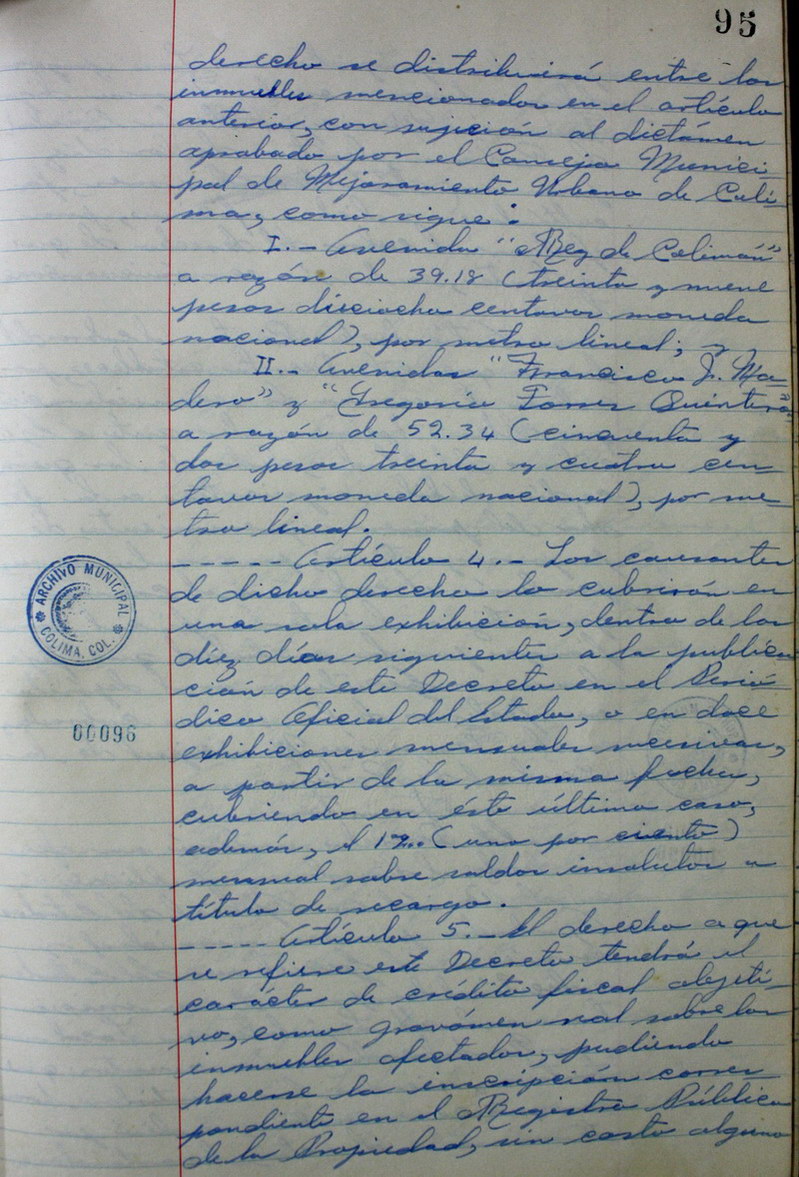 95
derecho se distribuirá entre los
inmuebles mencionados en el artículo
anterior, con sujeción al dictámen
aprobado por el Concejo Munici-
pal de Mejoramiento Urbano de Coli-
ma, como sigue:
I.- Avenida "Rey de Colimán"
a razón de 39.18 (treinta y nueve
pesos dieciocho centavos moneda
nacional), por metro lineal; y
II.- Avenidas "Francisco J. Ma-
dero" y "Gregorio Torres Quintero"
a razón de 52.34 (cincuenta y
dos pesos treinta y cuatro cen-
tavos moneda nacional), por me-
tro lineal.
----- Artículo 4.- Los causantes
de dicho derecho lo cubrirán en
una sola exhibición, dentro de los
díez días siguientes a la publica-
ción de este Decreto en el Perió-
dico Oficial del Estado, o en doce
exhibiciones mensuales sucesivas,
a partir de la misma fecha,
cubriendo en éste último caso,
además, el 1% (uno por ciento)
mensual sobre saldos insolutos a
título de recargo.
----- Artículo 5.- El derecho a que
se refiere este Decreto tendrá el
carácter de crédito fiscal objeti-
vo, como gravámen real sobre los
inmuebles afectados, pudiendo
hacerse la inscripción corres-
pondiente en el Registro Público
de la Propiedad, sin costo alguno
ARCHIVO MUNICIPAL
COLIMA, COL.
00096